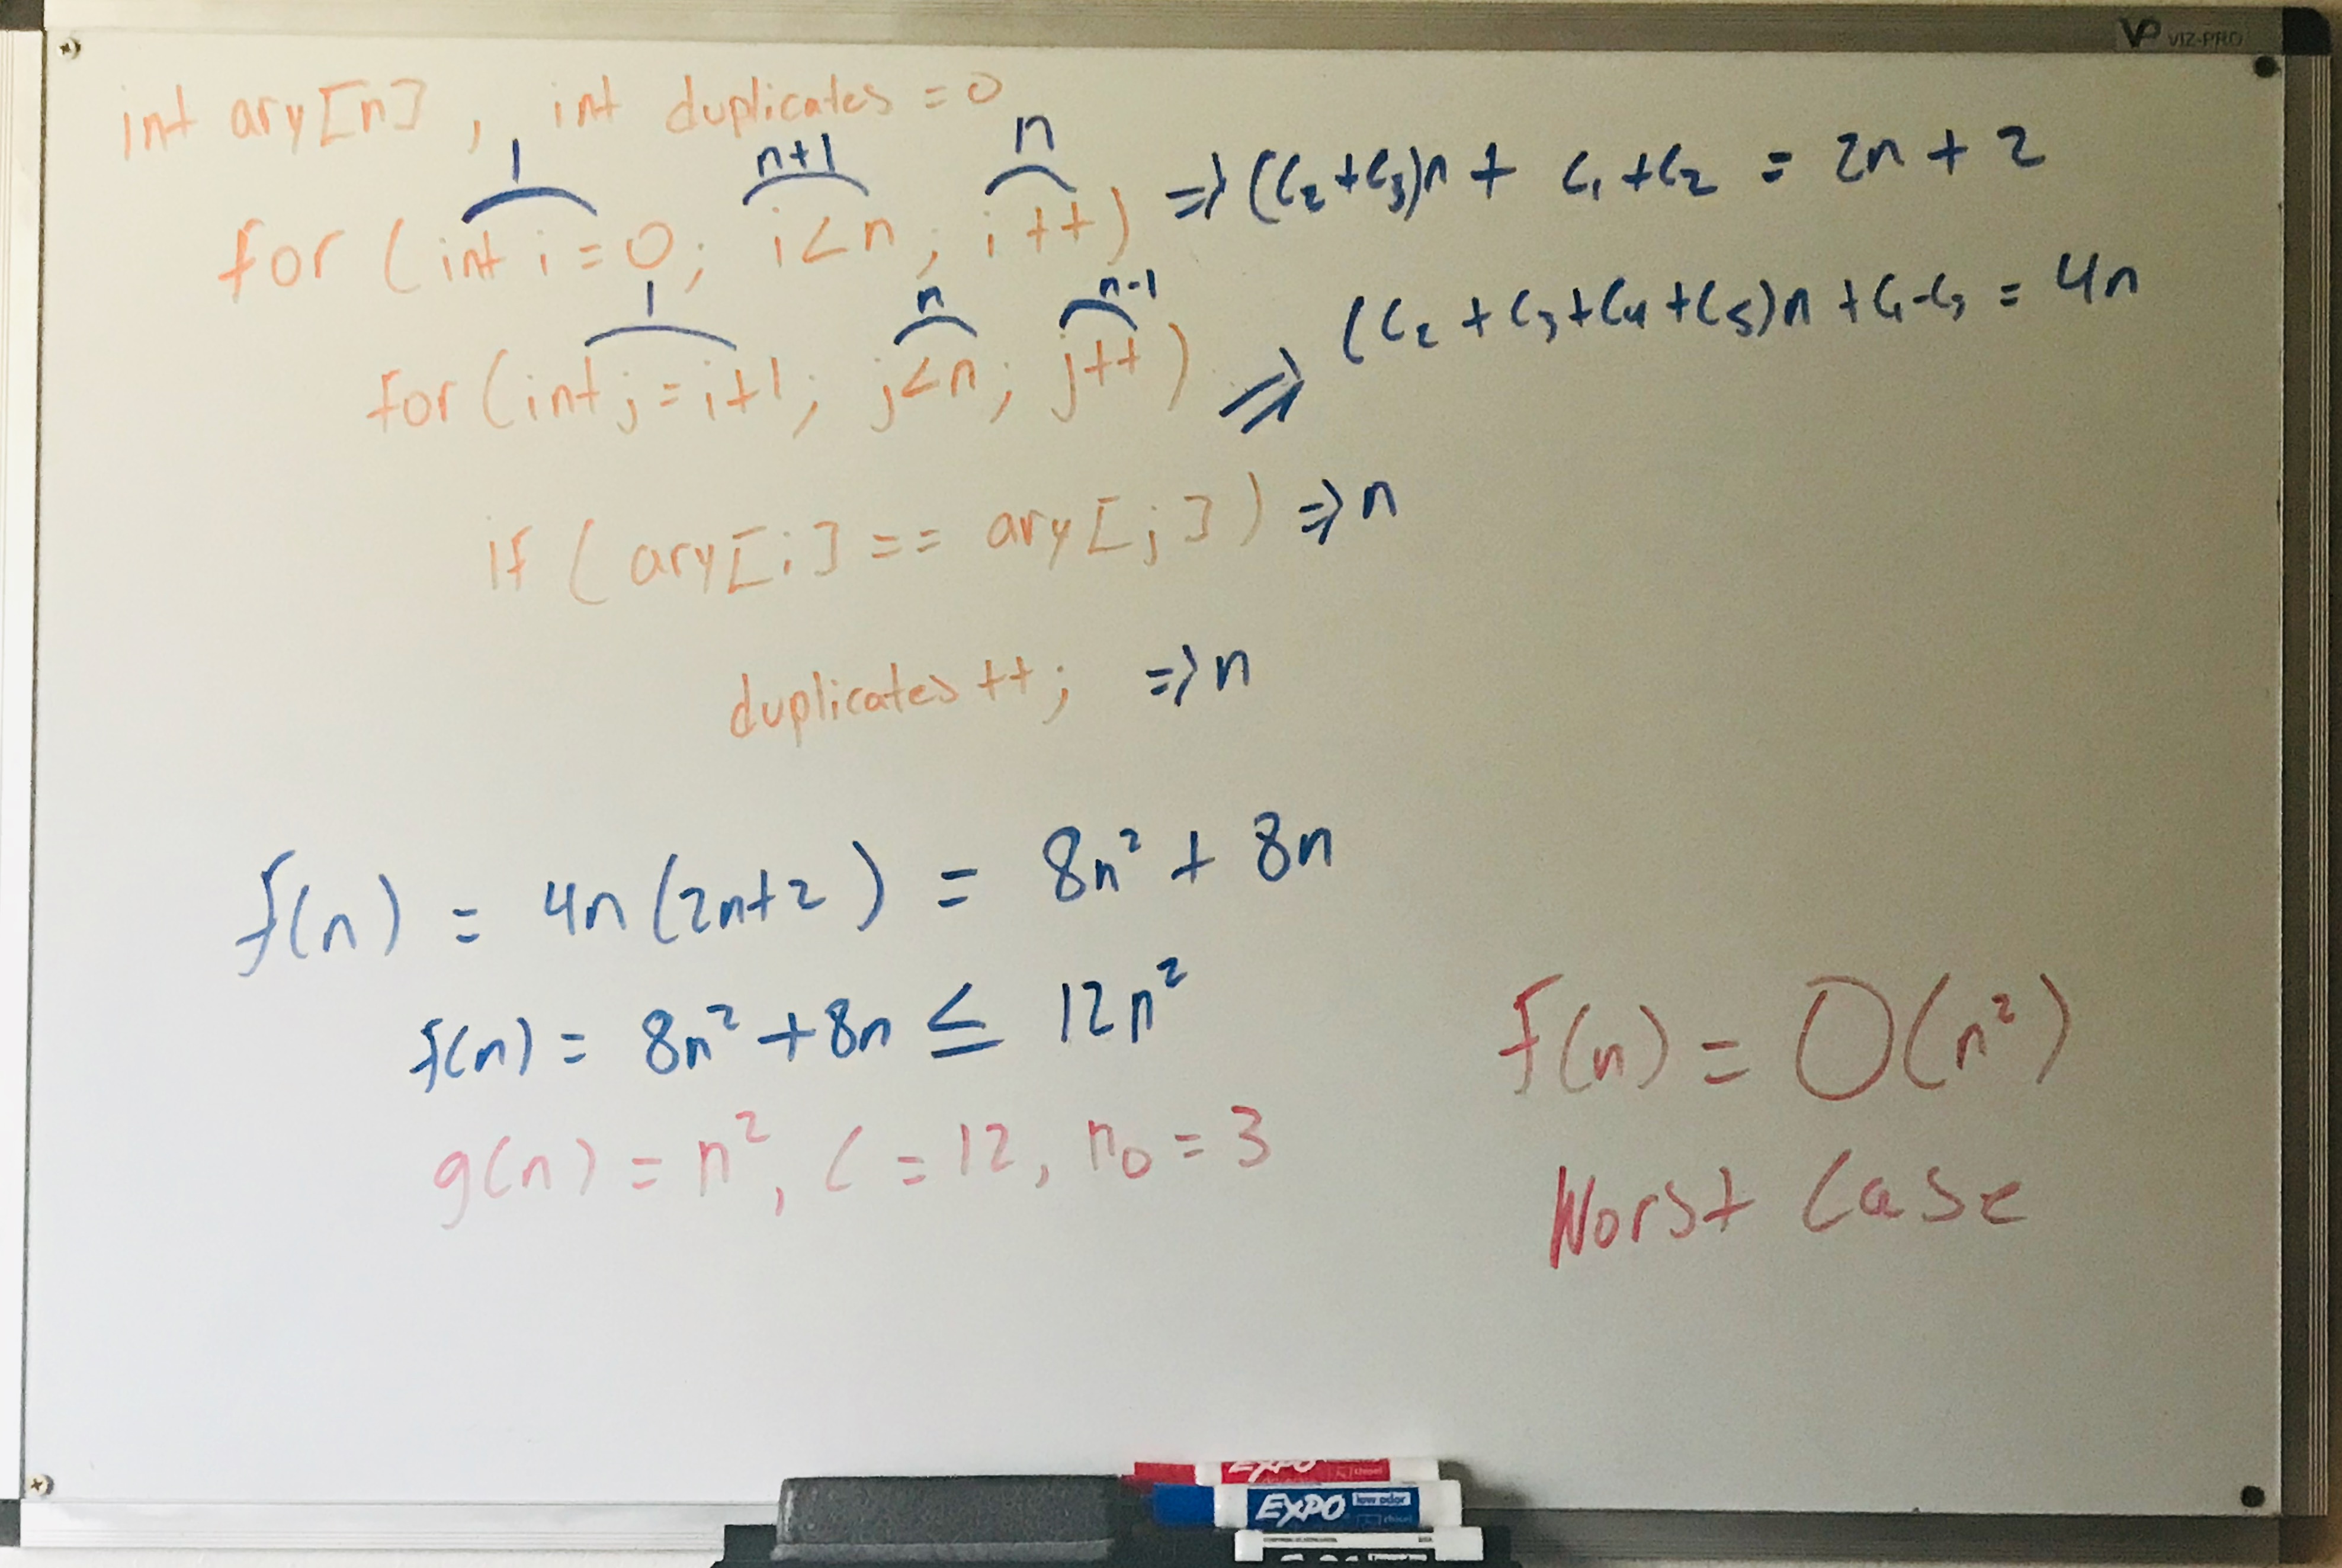 VP VIZ-PRO
int ary[n] , int duplicates = 0
1 n+1 n
for (int i = 0; i<n; i++) => (C₂+C₃)n + C₁+C₂ = 2n + 2
1 n n-1
for (int j = i+1; j<n; j++) => (C₂+C₃+C₄+C₅)n + C₁-C₃ = 4n
if (ary[i] == ary[j]) => n
duplicates++; => n
f(n) = 4n(2n+2) = 8n² + 8n
f(n) = 8n² + 8n ≤ 12n²
g(n) = n², C = 12, n₀ = 3
f(n) = O(n²)
Worst Case
EXPO
EXPO low odor
chisel